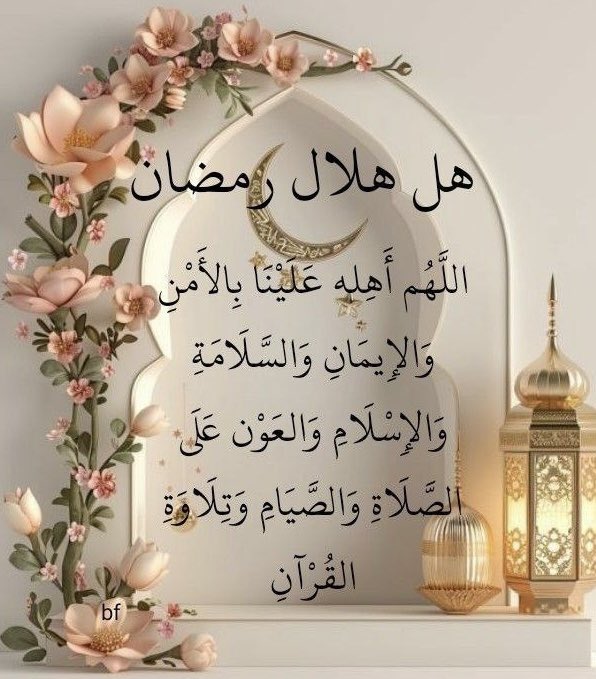 هل هلال رمضان
اللَّهُم أَهِله عَلَيْنَا بِالأَمْنِ
وَالإِيمَانِ وَالسَّلَامَةِ
وَالإِسْلَامِ وَالعَوْن عَلَى
الصَّلَاةِ وَالصَّيَامِ وَتِلَاوَةِ
القُرْآنِ
bf